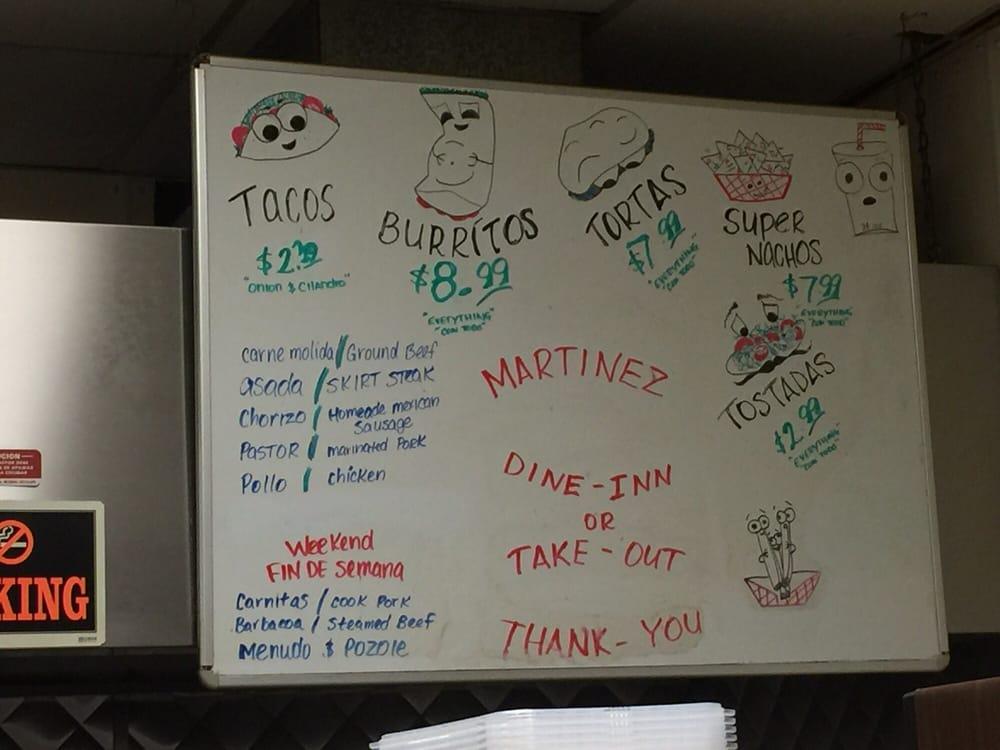 TACOS
$2.99
"Onion & Cilandro"
BURRITOS
$8.99
"EVERYTHING"
"CON TODO"
TORTAS
$7.99
"EVERYTHING"
"CON TODO"
SUPER
NACHOS
$7.99
"EVERYTHING"
"CON TODO"
TOSTADAS
$2.99
"EVERYTHING"
"CON TODO"
carne molida/Ground Beef
asada /SKIRT STEAK
Chorizo / Homeade mexican
Sausage
PASTOR / marinated PORK
Pollo / chicken
Weekend
FIN DE semana
Carnitas / COOK PORK
Barbacoa / Steamed Beef
Menudo & POZOLE
MARTINEZ
DINE-INN
OR
TAKE-OUT
THANK-YOU
KING